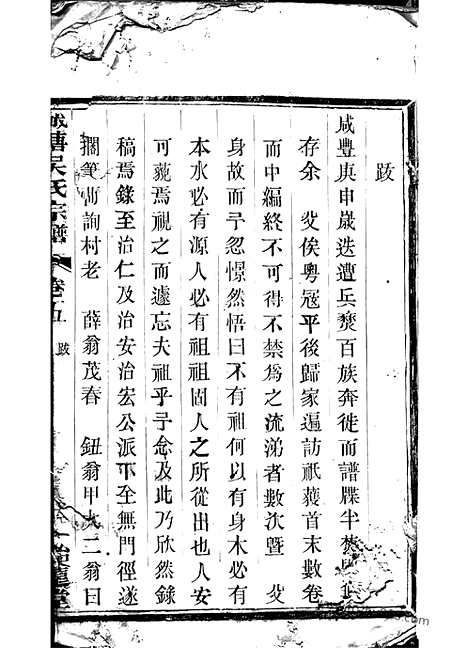 跋
咸豐庚申歲迭遭兵燹百族奔徙而譜牒半焚
存余 父俟粵冦平後歸家遍訪祇獲首末數卷
而中編終不可得不禁爲之流涕者數次曁 父
身故而予忽憬然悟曰不有祖何以有身木必有
本水必有源人必有祖祖固人之所從出也人安
可藐焉視之而遽忘夫祖乎予念及此乃欣然錄
稿焉錄至治仁及治安治宏公派下至無門徑遂
擱筆而詢村老 薛翁茂春 鈕翁甲大二翁曰
塘吳氏宗譜 卷五 跋 堂